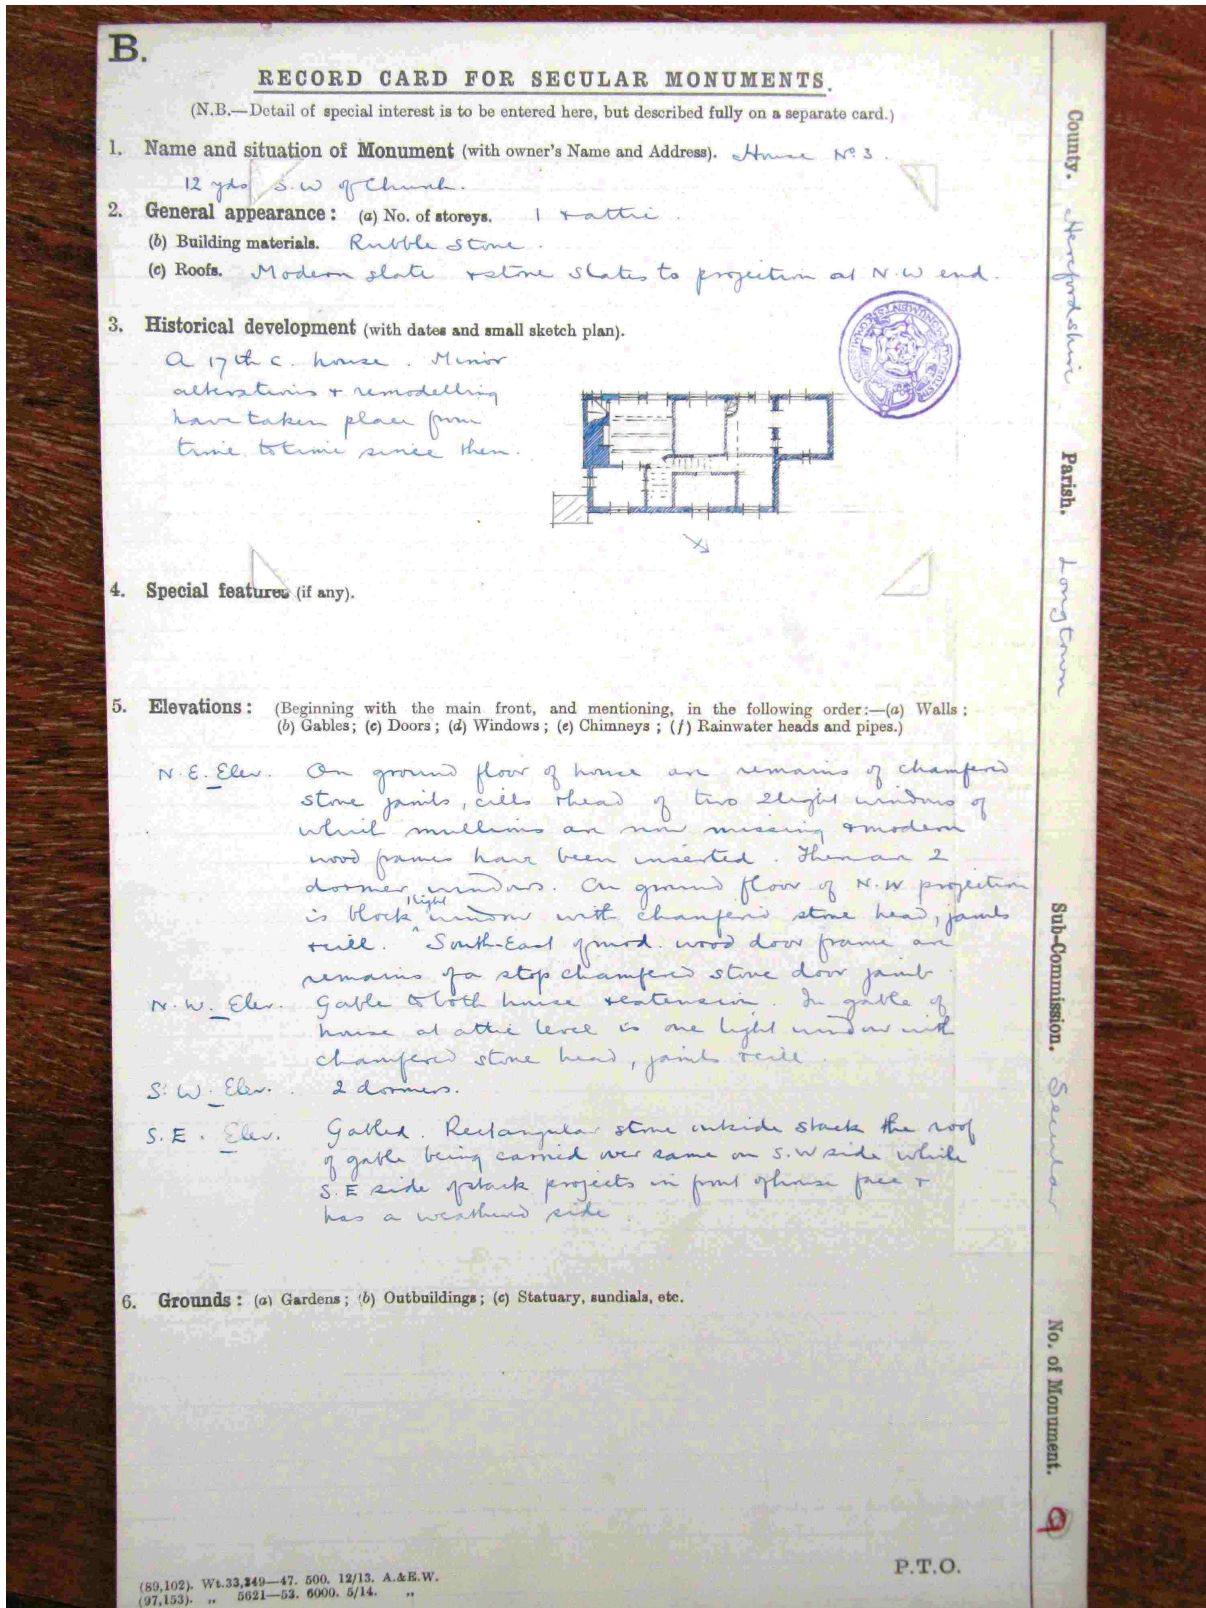 B.
RECORD CARD FOR SECULAR MONUMENTS.
(N.B.—Detail of special interest is to be entered here, but described fully on a separate card.)
1. Name and situation of Monument (with owner's Name and Address). House No. 3.
12 yds S.W of Church.
2. General appearance: (a) No. of storeys. 1 + attic.
(b) Building materials. Rubble Stone.
(c) Roofs. Modern slate + stone slates to projection at N.W end.
3. Historical development (with dates and small sketch plan).
A 17th c. house. Minor
alterations + remodelling
have taken place from
time to time since then.
4. Special features (if any).
5. Elevations: (Beginning with the main front, and mentioning, in the following order:—(a) Walls;
(b) Gables; (c) Doors; (d) Windows; (e) Chimneys; (f) Rainwater heads and pipes.)
N.E. Elev. On ground floor of house are remains of chamfered
stone jambs, cills + head of two 2 light windows of
which mullions are now missing + modern
wood frames have been inserted. There are 2
dormer windows. On ground floor of N.W projection
is block 1 light window with chamfered stone head, jambs
+ cill. South-East of mod. wood door frame are
remains of a stop chamfered stone door jamb.
N.W. Elev. Gable to both house + extension. In gable of
house at attic level is one light window with
chamfered stone head, jambs + cill.
S.W. Elev. 2 dormers.
S.E. Elev. Gabled. Rectangular stone outside stack the roof
of gable being carried over same on S.W side while
S.E side of stack projects in front of house face +
has a weathered side.
6. Grounds: (a) Gardens; (b) Outbuildings; (c) Statuary, sundials, etc.
P.T.O.
(89,102). Wt.33,349—47. 500. 12/13. A.&E.W.
(97,153). „ 5621—53. 6000. 5/14. „
County. Herefordshire
Parish. Longtown
Sub-Commission. Secular
No. of Monument. 9